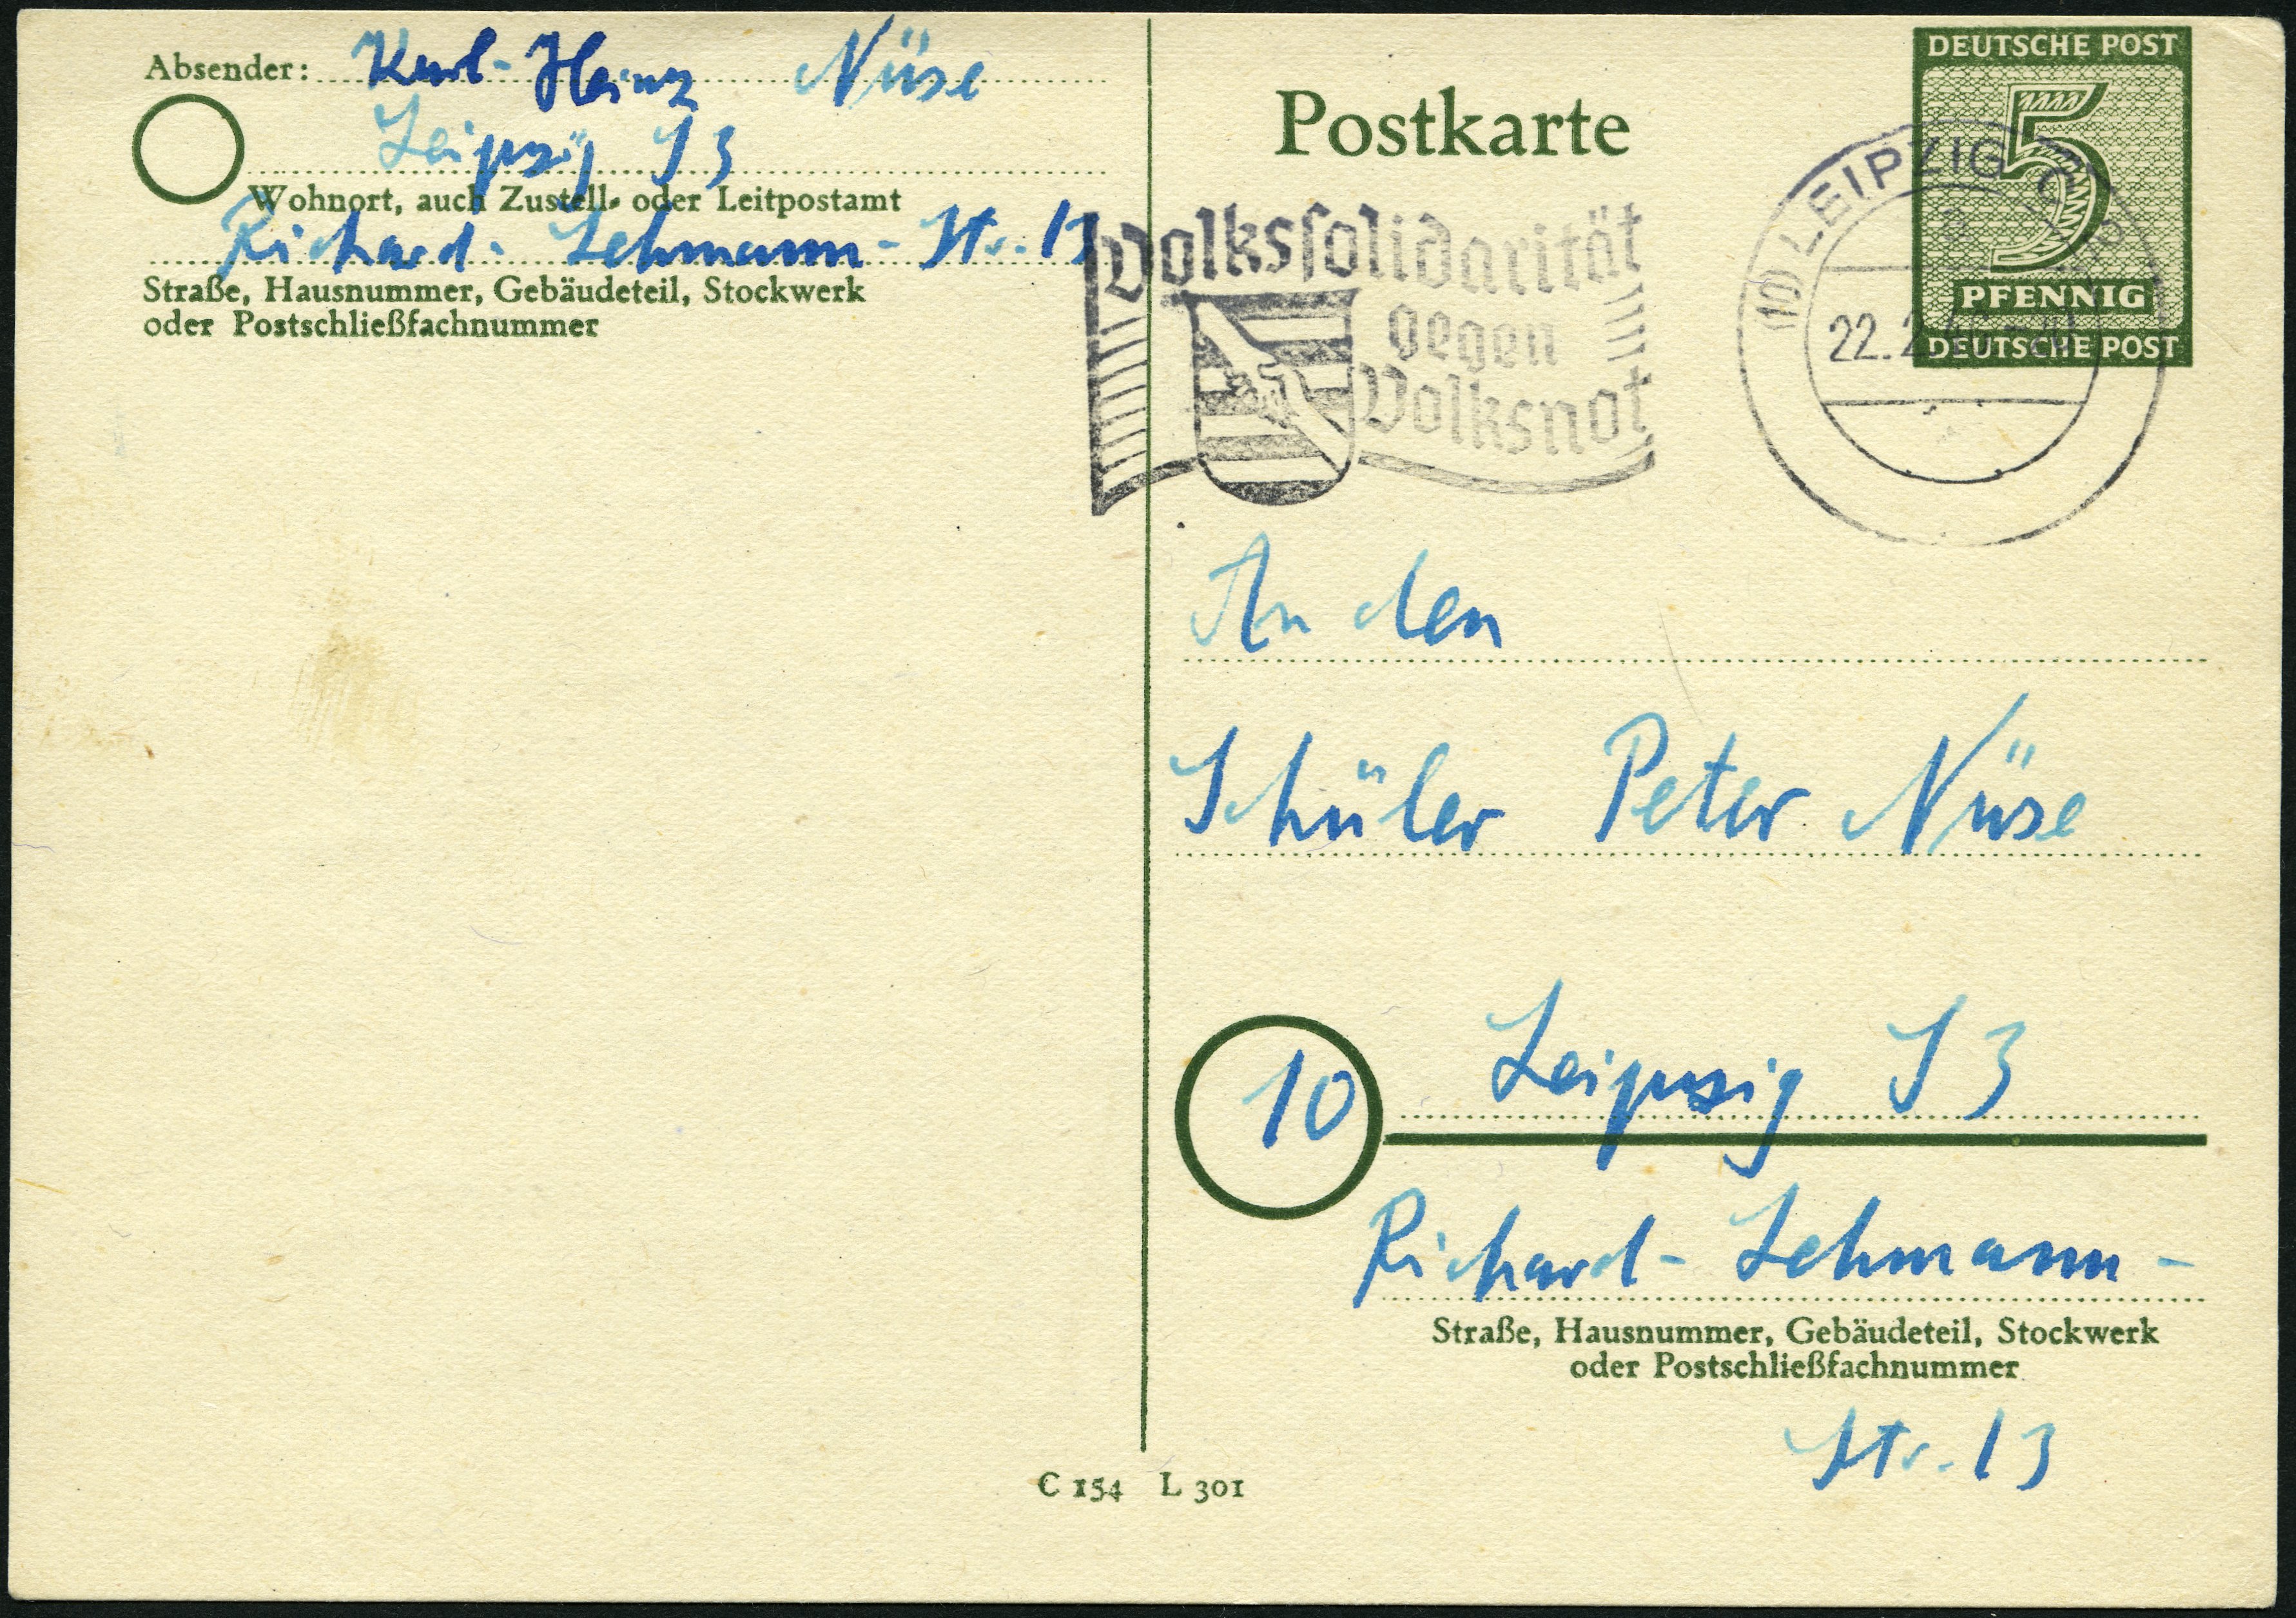 Absender: Karl-Heinz Nüse
Leipzig S 3
Wohnort, auch Zustell- oder Leitpostamt
Richard-Lehmann-Str. 13
Straße, Hausnummer, Gebäudeteil, Stockwerk
oder Postschließfachnummer
Postkarte
DEUTSCHE POST
5
PFENNIG
DEUTSCHE POST
(10) LEIPZIG C
22.2.
Volkssolidarität
gegen
Volksnot
An den
Schüler Peter Nüse
10 Leipzig S 3
Richard-Lehmann-
Straße, Hausnummer, Gebäudeteil, Stockwerk
oder Postschließfachnummer
Str. 13
C 154 L 301